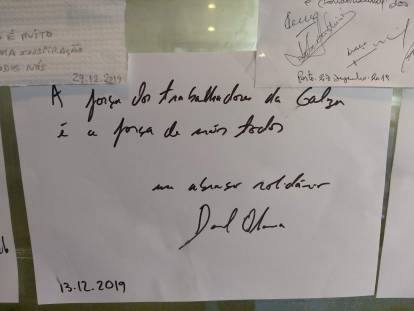 É MUITO
UMA INSPIRAÇÃO
TODOS NÓS
29.12.2019
Porto, 27 Dezembro 2019
A força dos trabalhadores da Galza
é a força de nós todos
um abraço solidário
13.12.2019